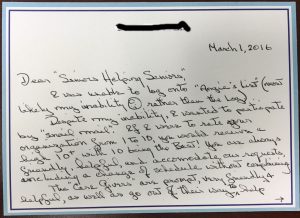 March 1, 2016
Dear "Seniors Helping Seniors",
I was unable to log onto "Angie's List" (most
likely my inability ☺ rather than the log).
Despite my inability, I wanted to participate
by "snail mail". If I were to rate your
organization from 1 to 10, you would receive a
high 10+ with 10 being the Best! You are always
friendly, helpful, and accommodate our requests,
including a change of schedule without complaining.
The Care Givers are prompt, very friendly &
helpful, as well as go out of their way to help